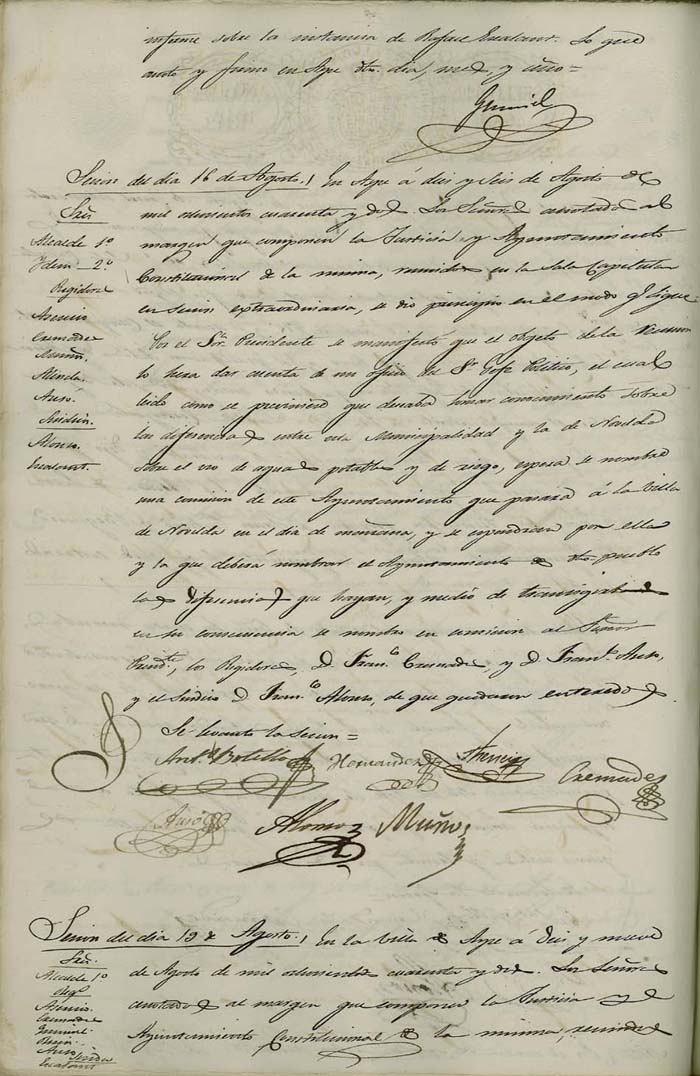 informe sobre la instancia de Rafael Escalant. Lo que
auto y firmo en Aspe dho. dia, mes, y año=
Sesion del dia 16 de Agosto.
Sres
Alcalde 1º
Ydem 2º
Regidores
Asencio
Cremades
Muñoz.
Almda.
Auso.
Sindico.
Alonso.
Escalant.
En Aspe á diez y seis de Agosto de
mil ochocientos cuarenta y dos. Los Señores anotados al
margen que componen la Justicia y Ayuntamiento
Constitucional de la misma, reunidos en la Sala Capitular
en sesion extraordinaria, se dio principio en el modo q. sigue
Por el Sor. Presidente se manifestó que el objeto de la reunion
lo hera dar cuenta de un oficio del Sr. Gefe Politico, el cual
leido como se previniese que deseaba tomar conocimiento sobre
las diferencias entre esta Municipalidad y la de Novelda
sobre el uso de aguas potables y de riego, espera se nombre
una comision de este Ayuntamiento que pasará á la Villa
de Novelda en el dia de mañana, y se espondran por ella
y la que deberá nombrar el Ayuntamiento de dho. pueblo
las diferencias que hayan, y medio de transigirlas
en su consecuencia se nombro en comision al Señor
Presidte., los Regidores, D. Franco. Cremades, y D. Franco. Auso,
y el Sindico D. Franco. Alonso, de que quedaron enterados.
Se levanto la sesion=
Anto. Botella
Hernandez
Asencio
Cremades
Auso
Alonso
Muñoz
Sesion del dia 19 de Agosto.
Sres.
Alcalde 1º.
Regs.
Asencio.
Cremades
Auso
Sindico
Escalant
En la Villa de Aspe á diez y nueve
de Agosto de mil ochocientos cuarenta y dos. Los Señores
anotados al margen que componen la Justicia y
Ayuntamiento Constitucional de la misma, reunidos